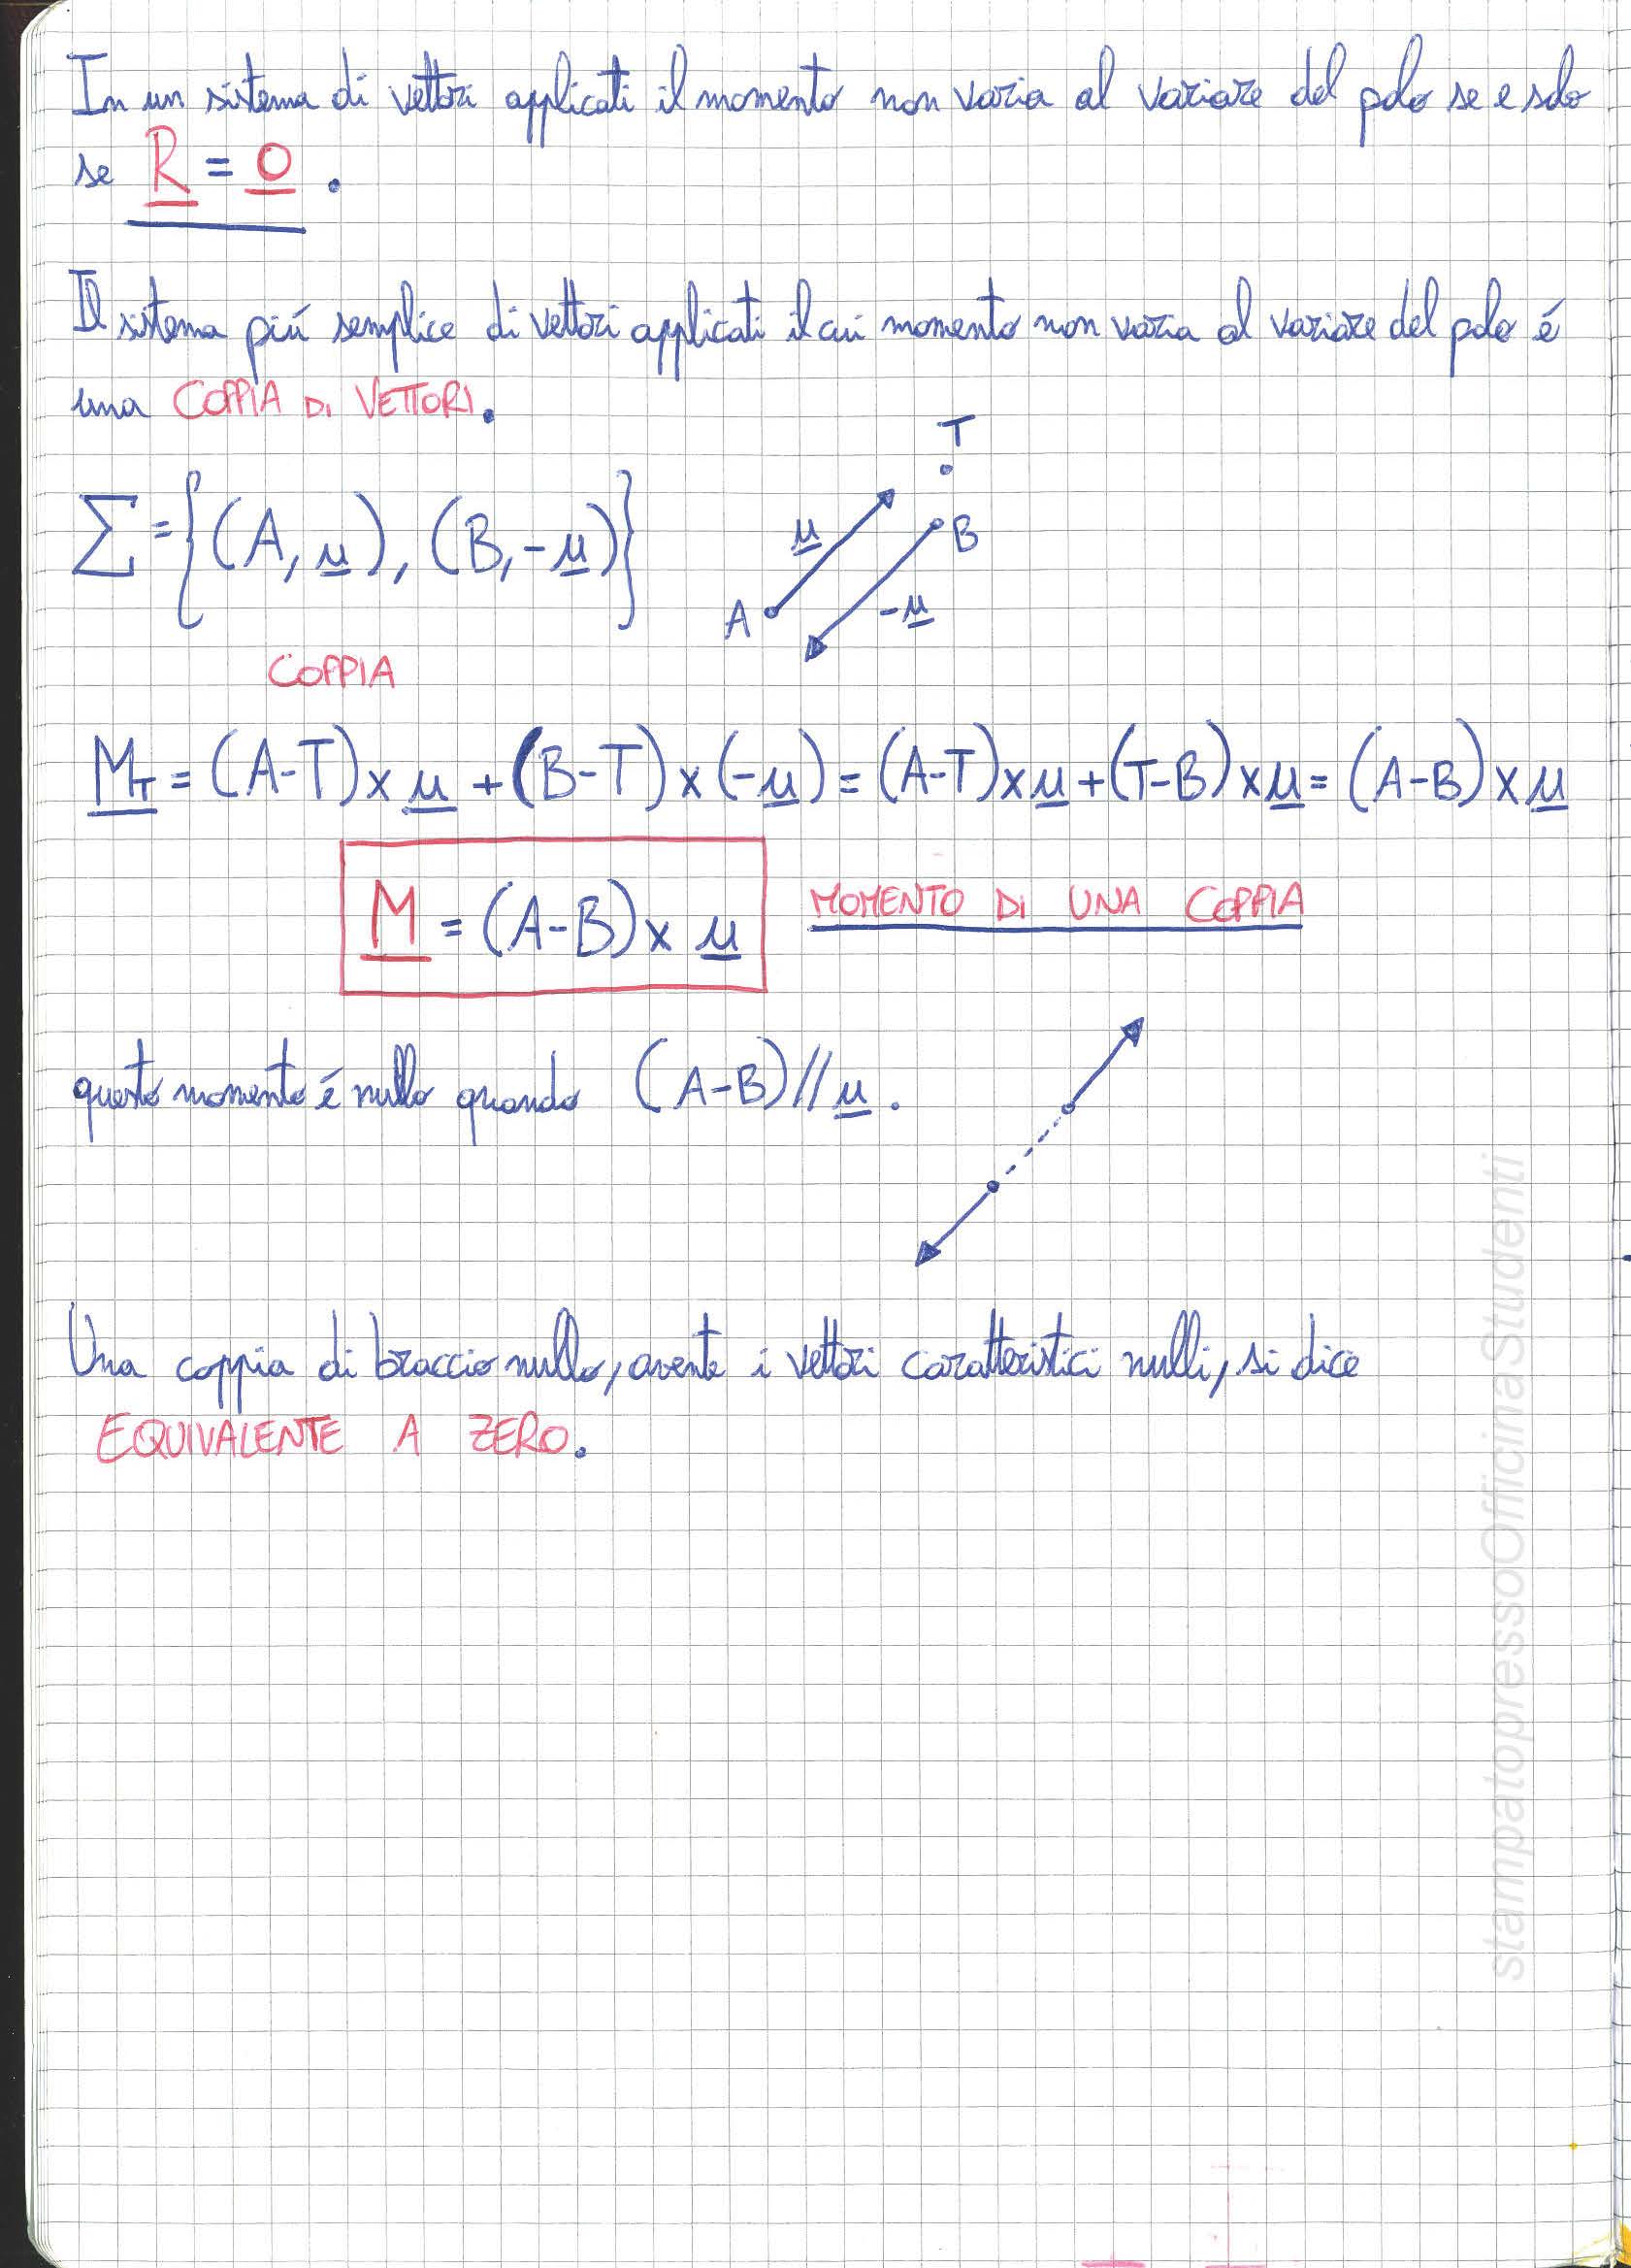 In un sistema di vettori applicati il momento non varia al variare del polo se e solo
se R = 0 .
Il sistema piú semplice di vettori applicati il cui momento non varia al variare del polo é
una COPPIA DI VETTORI.
T
Σ = {(A, u), (B, -u)}
u
B
A
-u
COPPIA
M_T = (A-T) × u + (B-T) × (-u) = (A-T) × u + (T-B) × u = (A-B) × u
M = (A-B) × u MOMENTO DI UNA COPPIA
questo momento é nullo quando (A-B) // u .
Una coppia di braccio nullo, avente i vettori caratteristici nulli, si dice
EQUIVALENTE A ZERO.
stampatopressoOfficinaStudenti